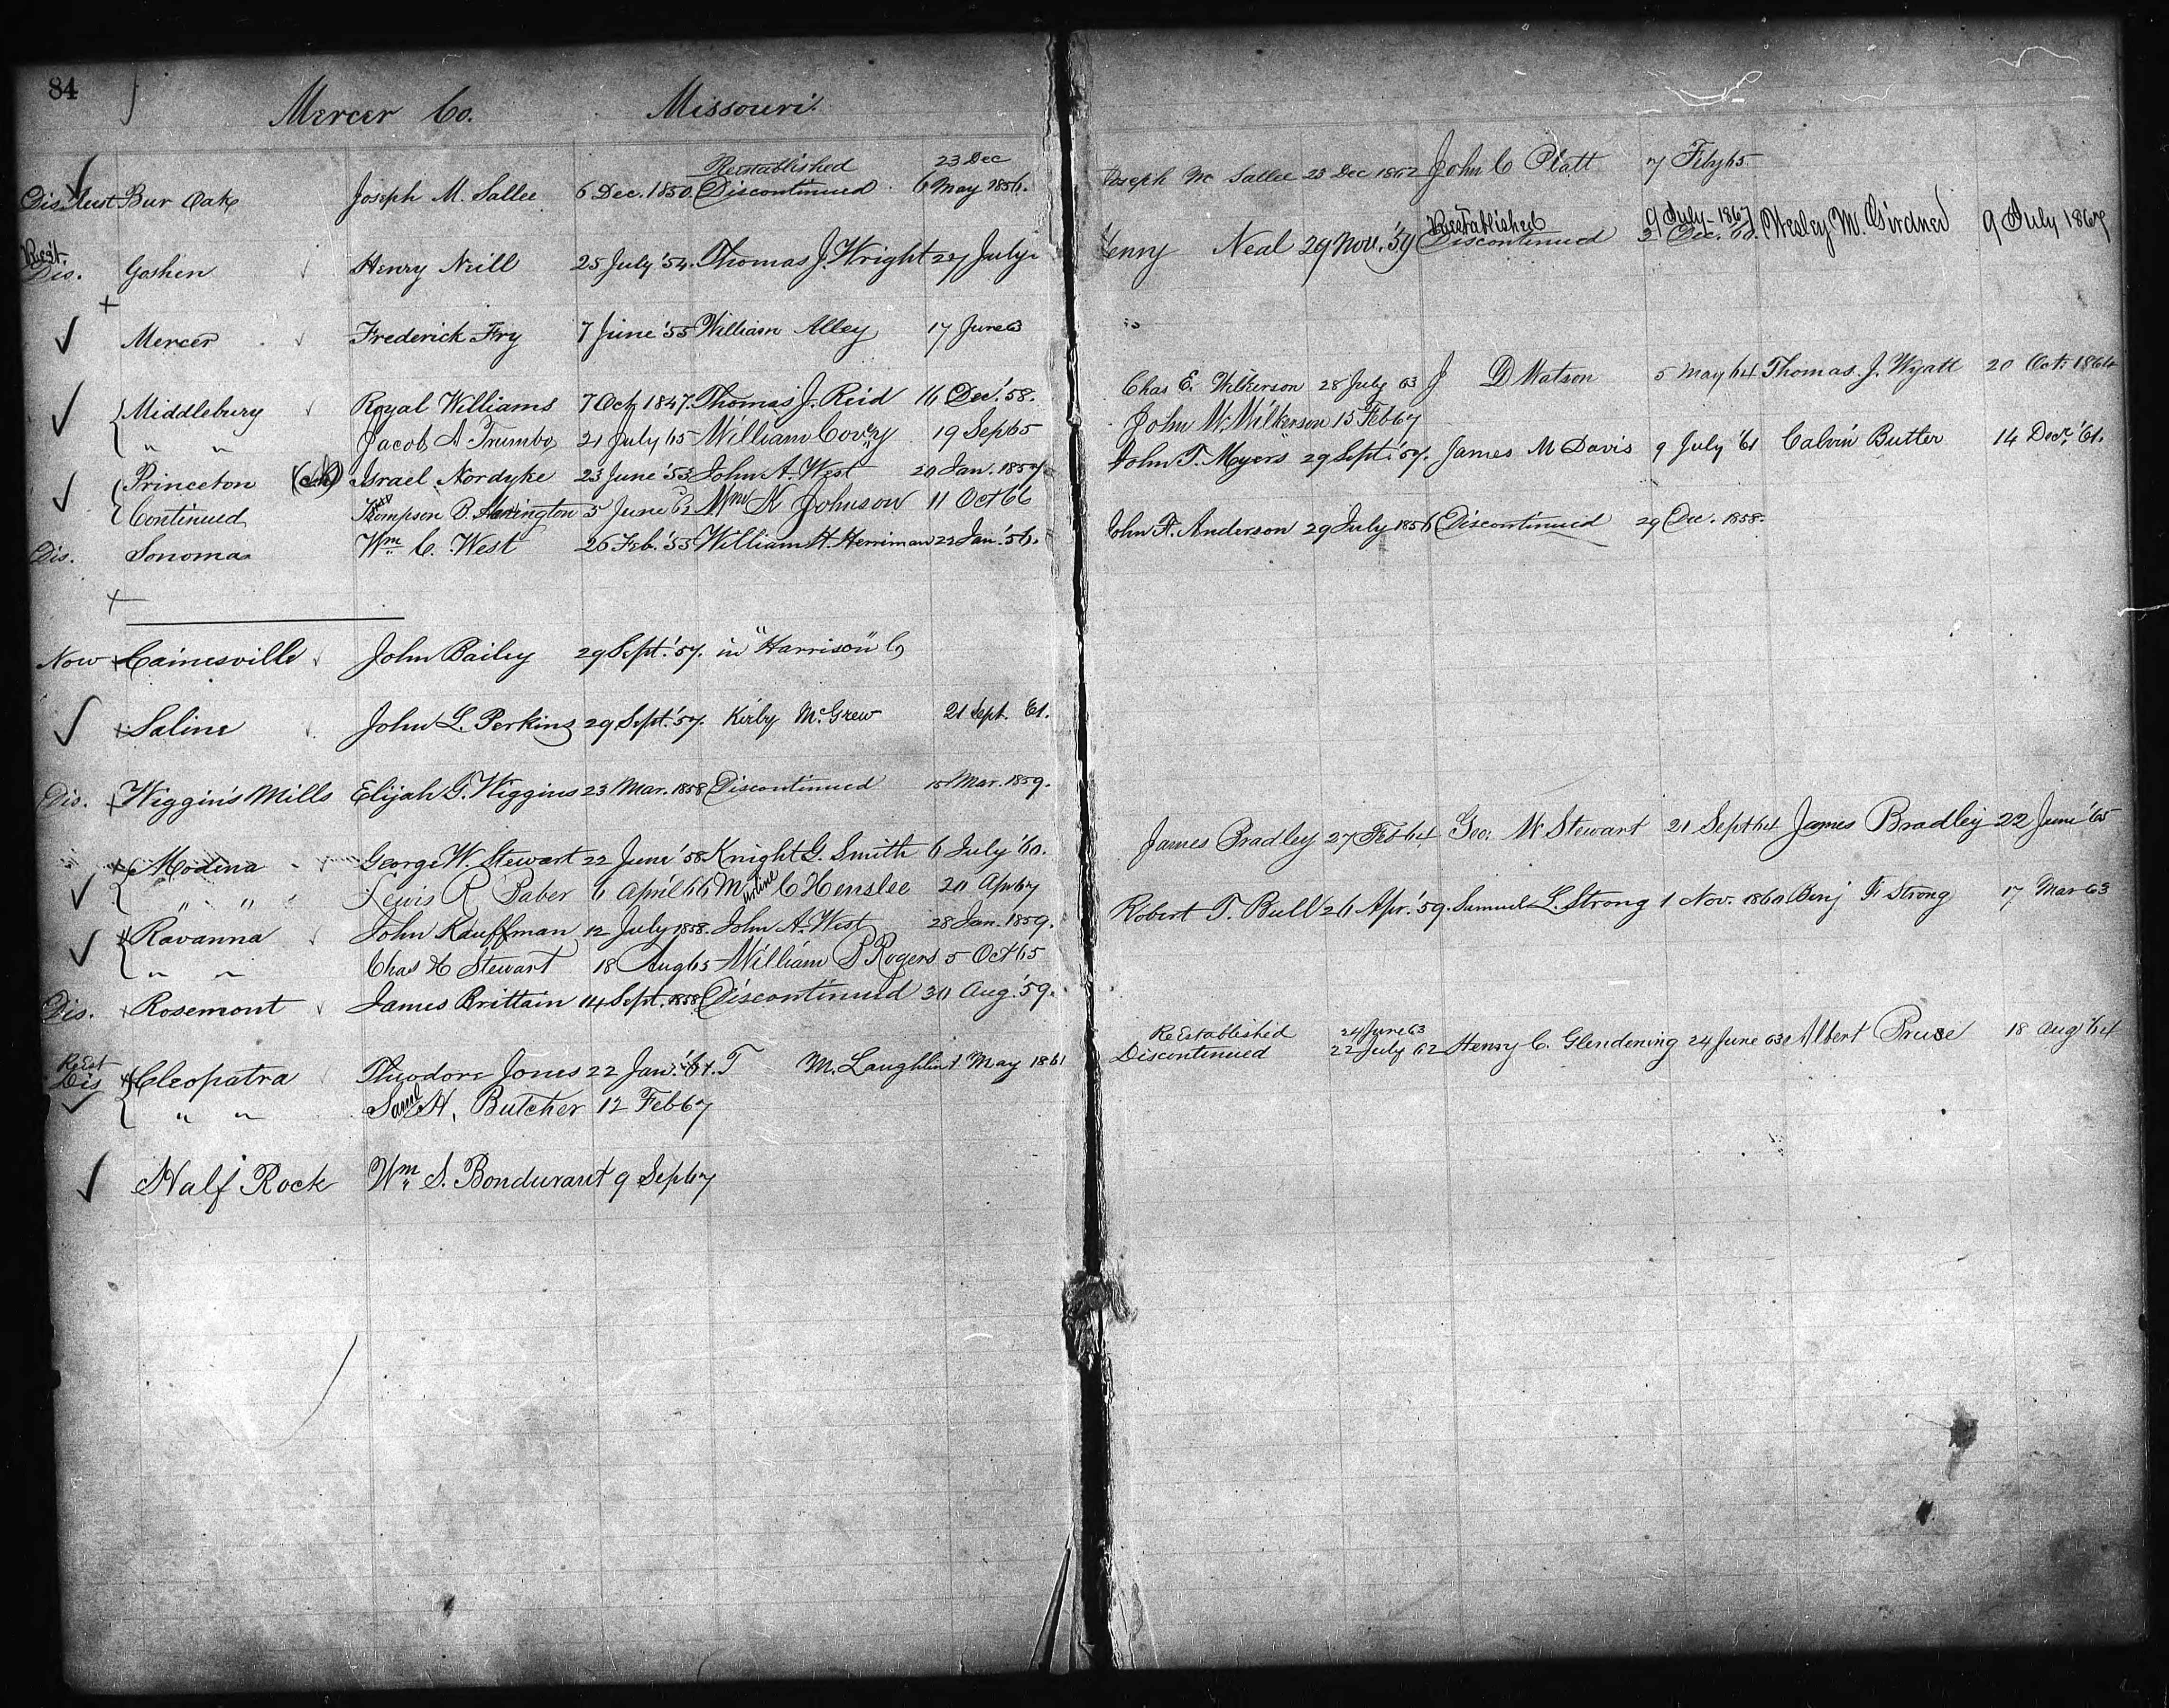 84
Mercer Co. Missouri.
Reestablished 23 Dec
Dis. Bur Oak Joseph M. Sallee 6 Dec. 1850. Discontinued 6 May 1856. Joseph Mc Sallee 23 Dec 1862 John C Platt 7 Feby 65
Reestablished 9 July - 1867
Dis. Goshen Henry Neill 25 July '54. Thomas J. Wright 27 July Henry Neal 29 Nov. '59 Discontinued Dec. '60. Wesley M. Girdner 9 July 1867
Mercer Frederick Fry 7 June '55 William Alley 17 June 63
Middlebury Royal Williams 7 Oct 1847. Thomas J. Reid 16 Dec. '58. Chas E. Wilkerson 28 July 63 J D Watson 5 May 64 Thomas. J. Wyatt 20 Oct. 1864
" " Jacob A Trumbo 21 July 65 William Covey 19 Sep 65 John W. Wilkerson 15 Feb 67
Princeton (c.h.) Israel Nordyke 23 June '53 John A. West 20 Jan. 1857. John T. Myers 29 Sept. '57. James M Davis 9 July '61 Calvin Butler 14 Decr. '61.
Continued Thompson B. 5 June Wm N Johnson 11 Oct 66
Dis. Sonoma Wm. C. West 26 Feb. '55 William H. Herriman 22 Jan. '56. John F. Anderson 29 July 1856 Discontinued 29 Dec. 1858.
Now Cainesville John Bailey 29 Sept. '57. in "Harrison" Co
Saline John L. Perkins 29 Sept. '57. Kirby McGrew 21 Sept. 61.
Dis. Wiggin's Mills Elijah G. Wiggins 23 Mar. 1858 Discontinued 15 Mar. 1859.
Modena George W. Stewart 22 June '58 Knight G. Smith 6 July '60. James Bradley 27 Feb 64 Geo. W Stewart 21 Sept 64 James Bradley 22 June '65
" " Lewis R Baber 6 April 66 Martine C Henslee 20 Ap 67
Ravanna John Kauffman 12 July 1858. John A. West 28 Jan. 1859. Robert T. Bull 26 Apr. '59. Samuel L. Strong 1 Nov. 1860 Benj F Strong 17 Mar 63
" " Chas H Stewart 18 Aug 65 William P Rogers 5 Oct 65
Dis. Rosemont James Brittain 14 Sept. 1858 Discontinued 30 Aug. '59.
ReEst ReEstablished 24 June 63
Dis Cleopatra Theodore Jones 22 Jan. '61. T M. Laughlin 1 May 1861 Discontinued 22 July 62 Henry C. Glendening 24 June 63 Albert Pruse 18 Aug 64
" " Saml H. Butcher 12 Feb 67
Half Rock Wm S. Bondurant 9 Sep 67